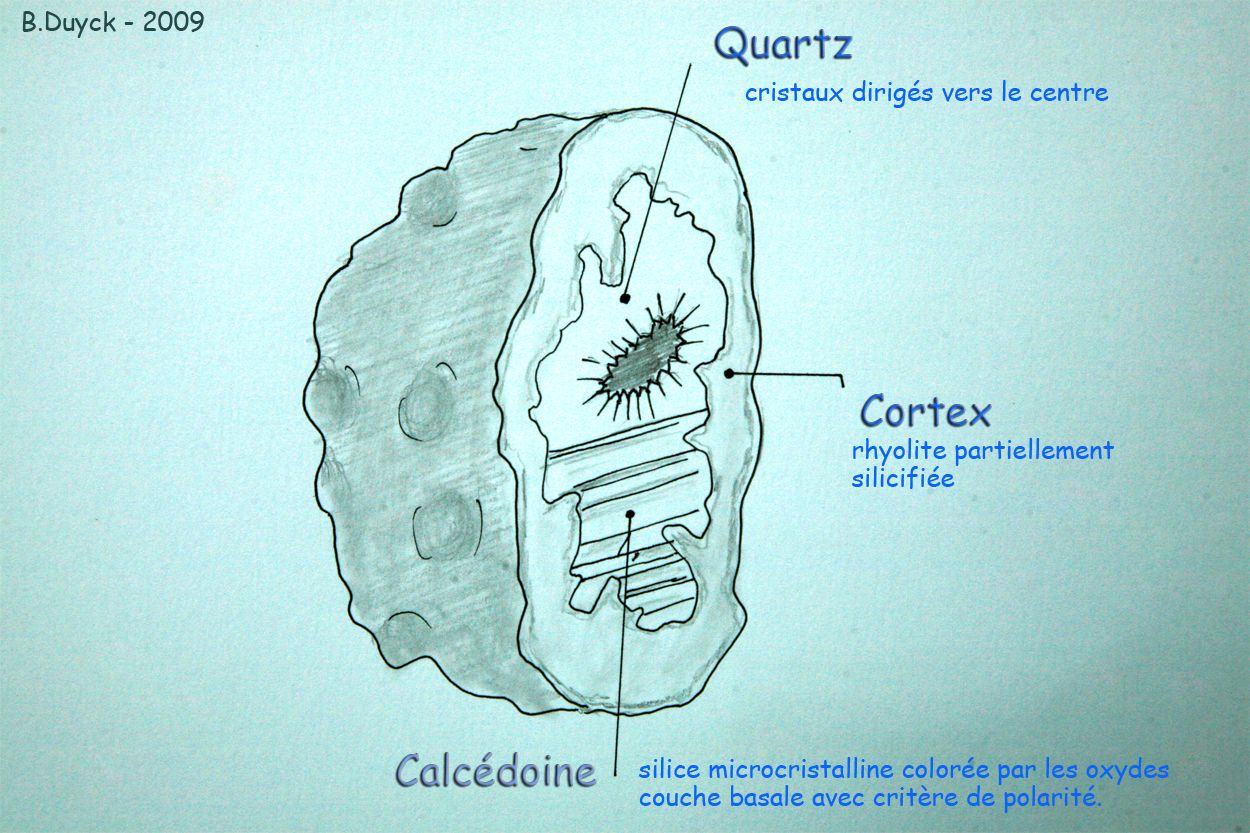 B.Duyck - 2009
Quartz
cristaux dirigés vers le centre
Cortex
rhyolite partiellement
silicifiée
Calcédoine
silice microcristalline colorée par les oxydes
couche basale avec critère de polarité.